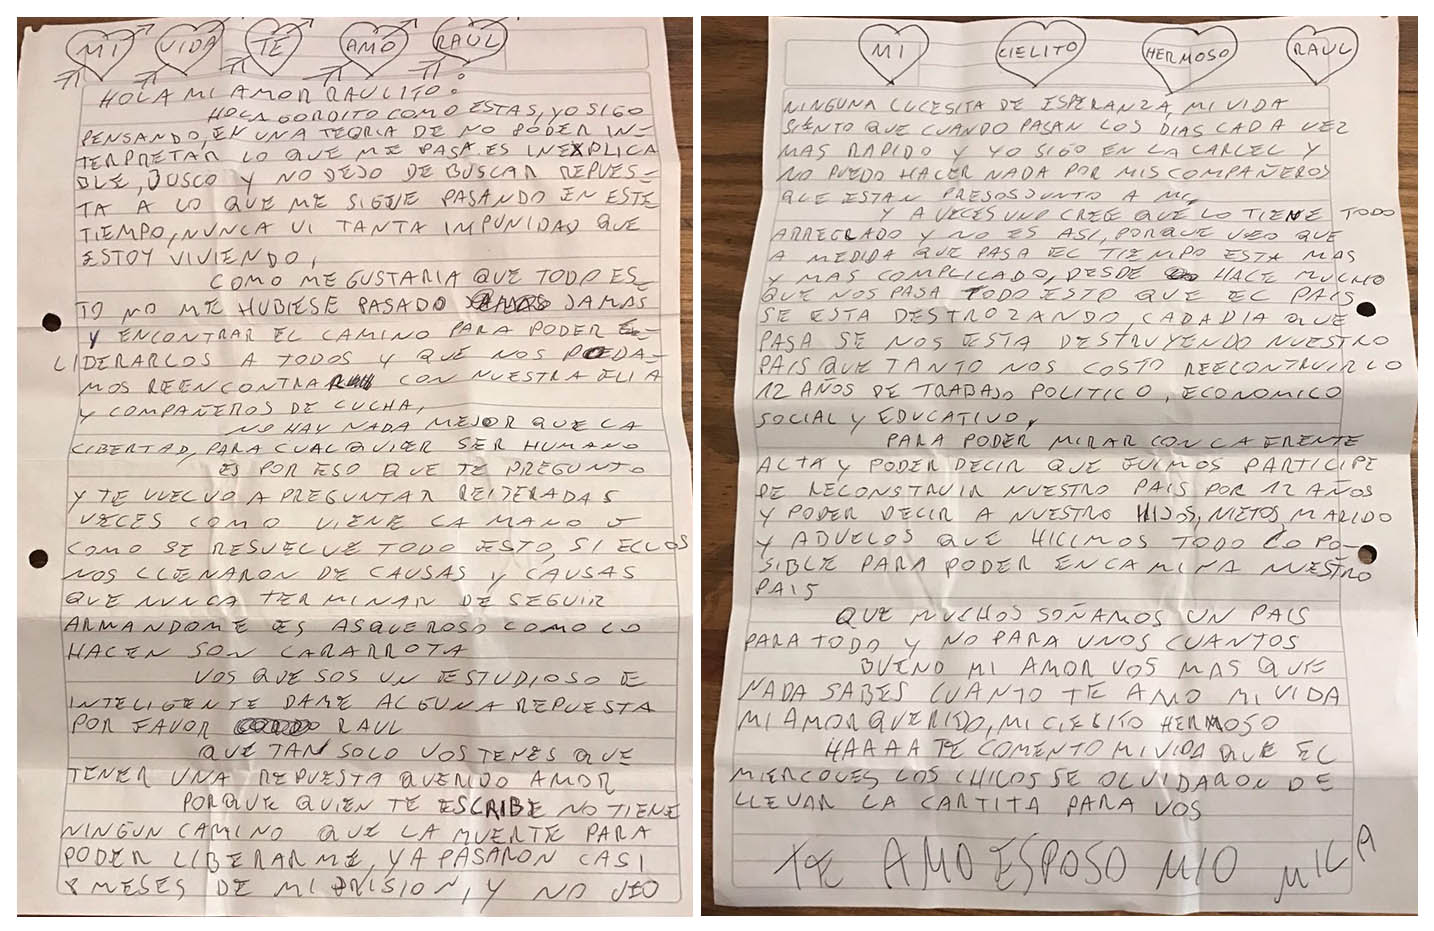 MI VIDA TE AMO RAUL
HOLA MI AMOR RAULITO.
HOLA GORDITO COMO ESTAS, YO SIGO
PENSANDO, EN UNA TEORIA DE NO PODER IN-
TERPRETAR LO QUE ME PASA ES INEXPLICA
BLE, BUSCO Y NO DEJO DE BUSCAR REPUES-
TA A LO QUE ME SIGUE PASANDO EN ESTE
TIEMPO, NUNCA VI TANTA IMPUNIDAD QUE
ESTOY VIVIENDO,
COMO ME GUSTARIA QUE TODO ES-
TO NO ME HUBIESE PASADO JAMAS
Y ENCONTRAR EL CAMINO PARA PODER
LIDERARLOS A TODOS Y QUE NOS PODA-
MOS REENCONTRA CON NUESTRA FLIA
Y COMPAÑEROS DE LUCHA,
NO HAY NADA MEJOR QUE LA
LIBERTAD, PARA CUALQUIER SER HUMANO
ES POR ESO QUE TE PREGUNTO
Y TE VUELVO A PREGUNTAR REITERADAS
VECES COMO VIENE LA MANO O
COMO SE RESUELVE TODO ESTO, SI ELLOS
NOS LLENARON DE CAUSAS Y CAUSAS
QUE NUNCA TERMINAR DE SEGUIR
ARMANDOME ES ASQUEROSO COMO LO
HACEN SON CARARROTA
VOS QUE SOS UN ESTUDIOSO E
INTELIGENTE DAME ALGUNA REPUESTA
POR FAVOR RAUL
QUE TAN SOLO VOS TENES QUE
TENER UNA REPUESTA QUERIDO AMOR
PORQUE QUIEN TE ESCRIBE NO TIENE
NINGUN CAMINO QUE LA MUERTE PARA
PODER LIBERARME, YA PASARON CASI
8 MESES DE MI PRISION, Y NO VEO
MI CIELITO HERMOSO RAUL
NINGUNA LUCESITA DE ESPERANZA, MI VIDA
SIENTO QUE CUANDO PASAN LOS DIAS CADA VEZ
MAS RAPIDO Y YO SIGO EN LA CARCEL Y
NO PUEDO HACER NADA POR MIS COMPAÑEROS
QUE ESTAN PRESOS JUNTO A MI,
Y A VECES UNO CREE QUE LO TIENE TODO
ARREGLADO Y NO ES ASI, PORQUE VEO QUE
A MEDIDA QUE PASA EL TIEMPO ESTA MAS
Y MAS COMPLICADO, DESDE HACE MUCHO
QUE NOS PASA TODO ESTO QUE EL PAIS
SE ESTA DESTROZANDO CADA DIA QUE
PASA SE NOS ESTA DESTRUYENDO NUESTRO
PAIS QUE TANTO NOS COSTO REECONTRUIRLO
12 AÑOS DE TRABAJO POLITICO, ECONOMICO
SOCIAL Y EDUCATIVO,
PARA PODER MIRAR CON LA FRENTE
ALTA Y PODER DECIR QUE FUIMOS PARTICIPE
DE RECONSTRUIR NUESTRO PAIS POR 12 AÑOS
Y PODER DECIR A NUESTRO HIJOS, NIETOS, MARIDO
Y ABUELOS QUE HICIMOS TODO LO PO-
SIBLE PARA PODER ENCAMINA NUESTRO
PAIS
QUE MUCHOS SOÑAMOS UN PAIS
PARA TODO Y NO PARA UNOS CUANTOS
BUENO MI AMOR VOS MAS QUE
NADA SABES CUANTO TE AMO MI VIDA
MI AMOR QUERIDO, MI CIELITO HERMOSO
HAAAA TE COMENTO MI VIDA QUE EL
MIERCOLES LOS CHICOS SE OLVIDARON DE
LLEVAR LA CARTITA PARA VOS
TE AMO ESPOSO MIO MILA